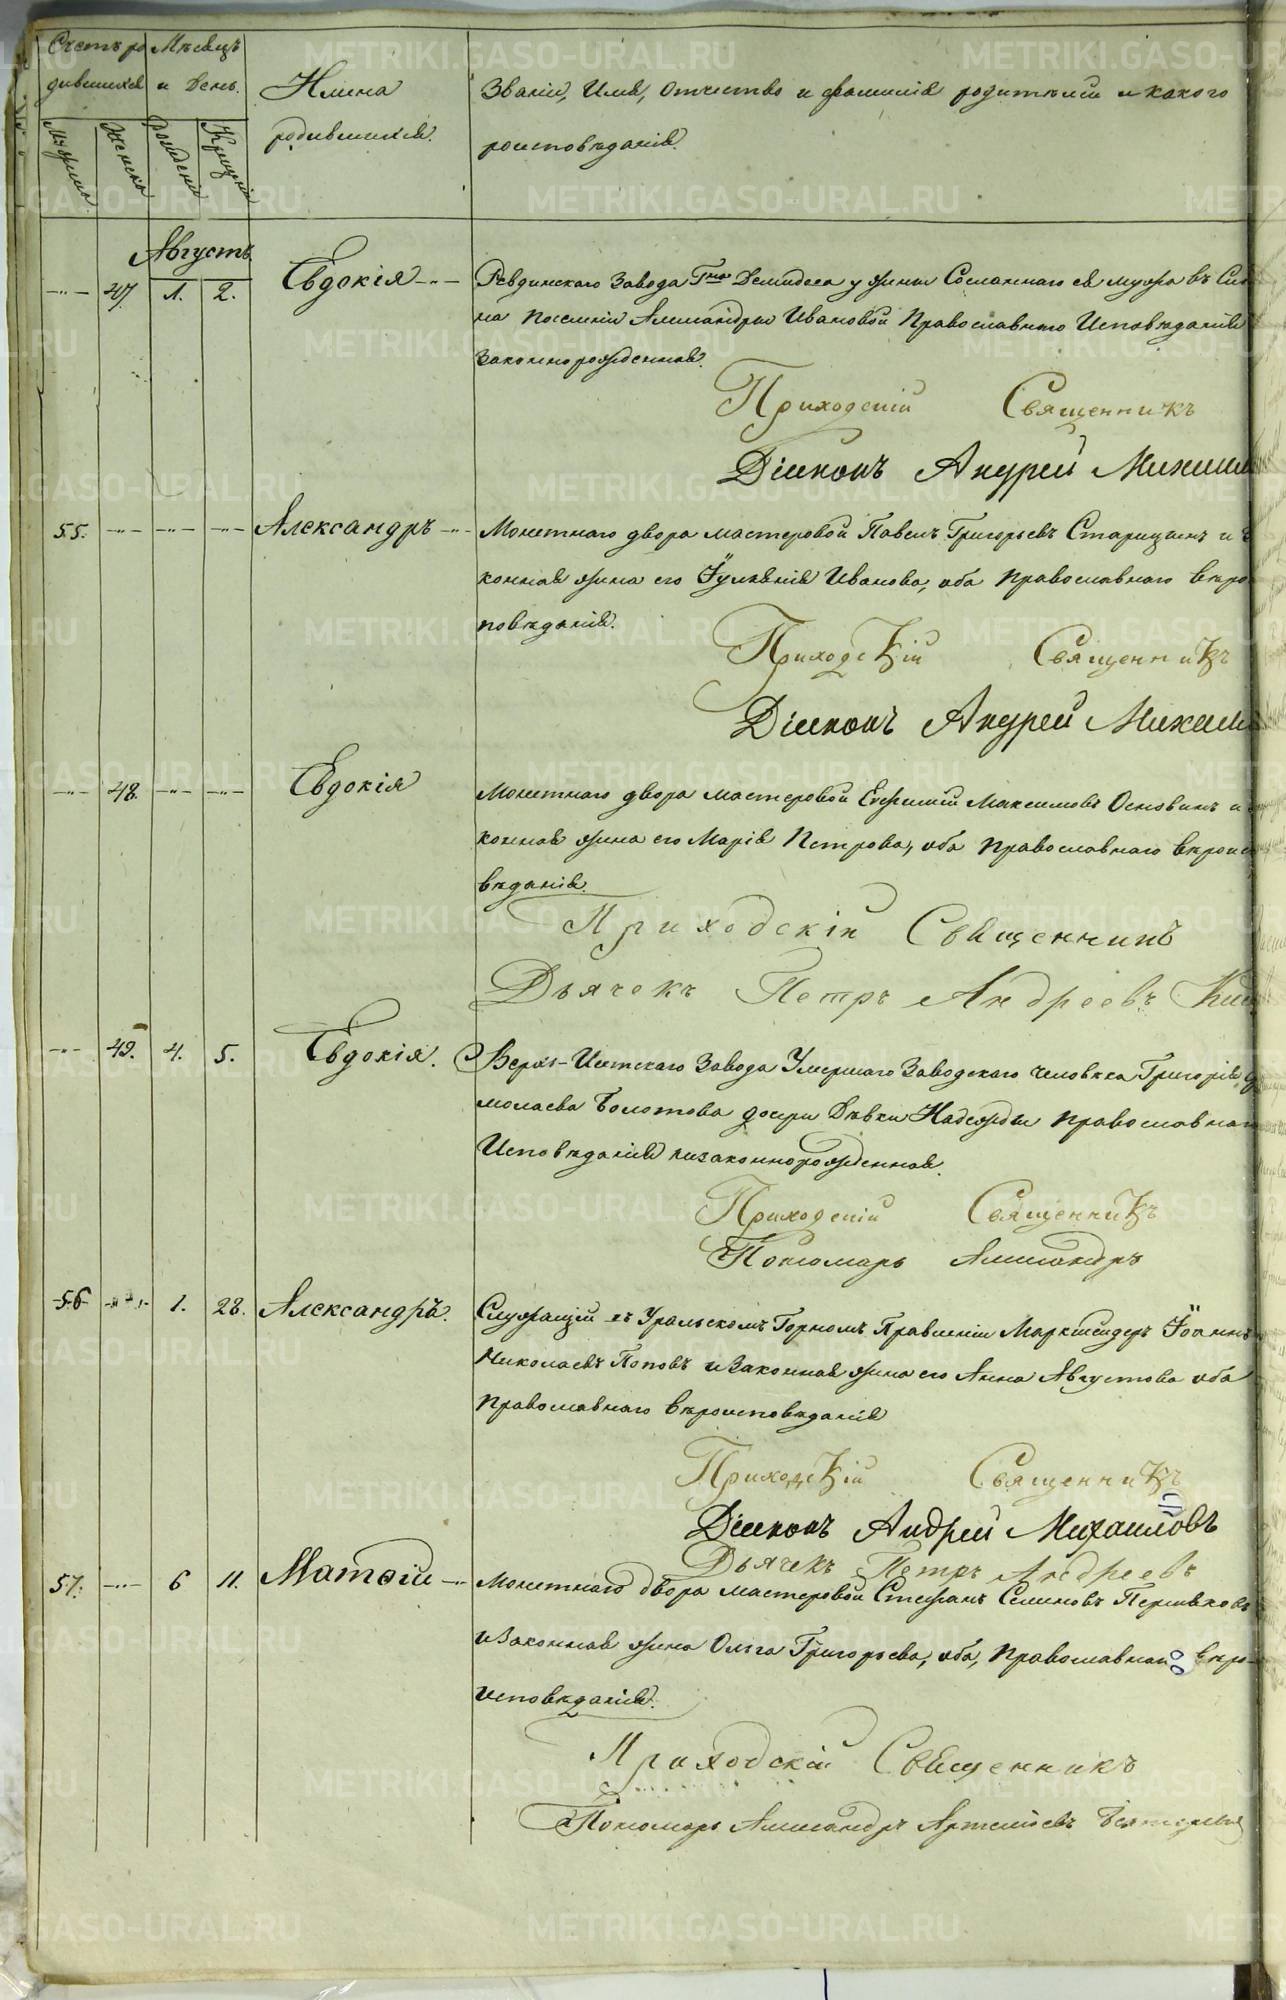 Счетъ ро Мѣсяцъ
дившихся и День.
Имена
родившихся.
Званіе, Имя, Отчество и фамилія родителей и какого
роисповѣданія.
Мужска Женска Рожденія Крещенія
Августъ
47. 1. 2. Евдокія
Ревдинскаго Завода Гна Демидова у жены Сосланнаго ея мужа въ Сиб
на поселеніе Александры Ивановой Православнаго Исповѣданія
Законнорожденная.
Приходскій Священникъ
Діаконъ Андрей Михаил
55. Александръ
Монетнаго двора мастеровой Павелъ Григорьевъ Старицынъ и З
конная жена его Іуліанія Иванова, оба православнаго вѣро
повѣданія.
Приходскій Священникъ
Діаконъ Андрей Михаил
48. Евдокія
Монетнаго двора мастеровой Евфимій Максимовъ Основинъ и
конная жена его Марія Петрова, оба православнаго вѣроис
вѣданія.
Приходскій Священникъ
Дьячекъ Петръ Андреевъ
49. 4. 5. Евдокія.
Верхъ-Исетскаго Завода Умершаго Заводскаго человѣка Григорія
молаева Болотова дочери Дѣвки Надежды православна
Исповѣданія незаконнорожденная.
Приходскій Священникъ
Пономарь Александръ
56 1. 28. Александръ.
Служащій въ Уральскомъ Горномъ Правленіи Маркшейдеръ Іоаннъ
Николаевъ Поповъ и Законная жена его Анна Августова оба
православнаго вѣроисповѣданія
Приходскій Священникъ
Діаконъ Андрей Михаиловъ
Дьячекъ Петръ Андреевъ
57. 6 11. Матѳій
Монетнаго двора мастеровой Стефанъ Семеновъ
и Законная жена Ольга Григорьева, оба, православнаго вѣро-
исповѣданія.
Приходскій Священникъ
Пономарь Александръ Артемьевъ